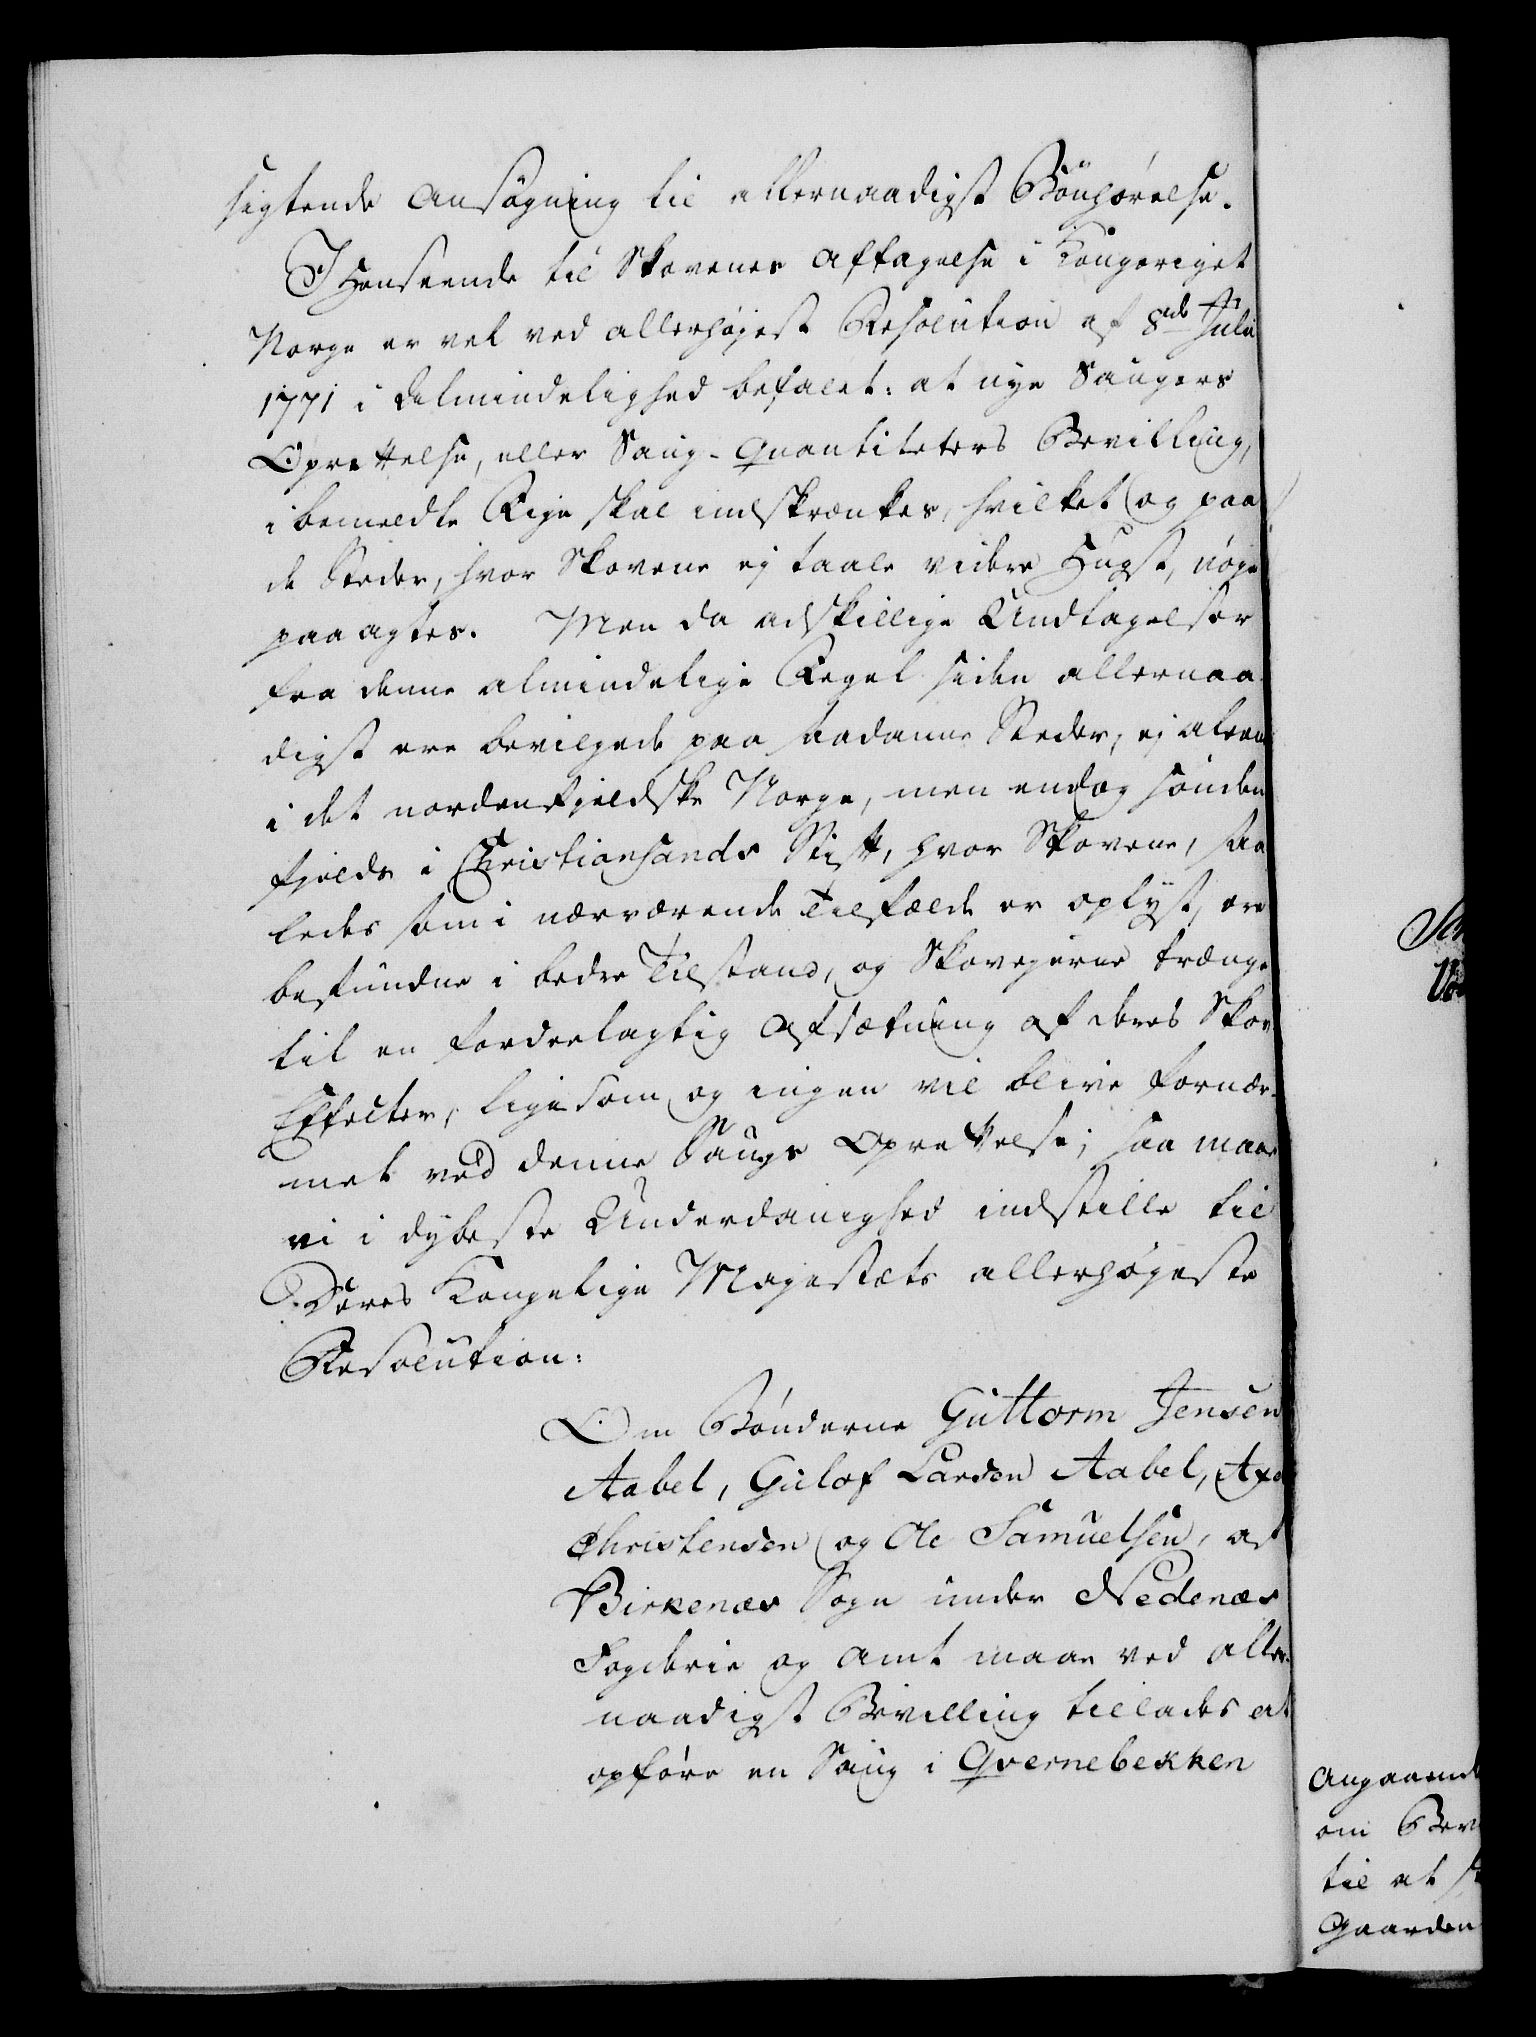 sigtende Ansøgning til allernaadigst Bønhørelse.
I Henseende til Skovenes Aftagelse i Kongeriget
Norge er vel ved allerhøjest Resolution af 8de Julii
1771 i Almindelighed befalet: at nye Saugers
Oprettelse, eller Saug-Quantiteters Bevilling,
i bemeldte Rige skal indskrænkes, hvilket og paa
de Steder, hvor Skovene ej taale videre Hugst, nøje
paaagtes. Men da adskillige Undtagelser
fra denne almindelige Regel siden allernaa-
digst ere bevilgede paa saadanne Steder, ej alene
i det nordenfjeldske Norge, men endog sønden-
fjelds i Christiansands Stift, hvor Skovene, saa-
ledes som i nærværende Tilfælde er oplyst, ere
befundne i bedre Tilstand, og Skovejerne trænge
til en fordeelagtig Afsætning af deres Skov-
Effecter, ligesom og ingen vil blive fornær-
met ved denne Saugs Oprettelse; saa maae
vi i dybeste Underdanighed indstille til
Deres Kongelige Majestæts allerhøjeste
Resolution:
Om Bønderne Guttorm Jensen
Aabel, Gulof Larsen Aabel,
Christensen og Ole Samuelsen, af
Birkenæs Sogn under Nedenæs
Fogderie og Amt maae ved aller-
naadigst Bevilling tillades at
opføre en Saug i Qvernebekken
Angaaende
om
til at
Gaarden